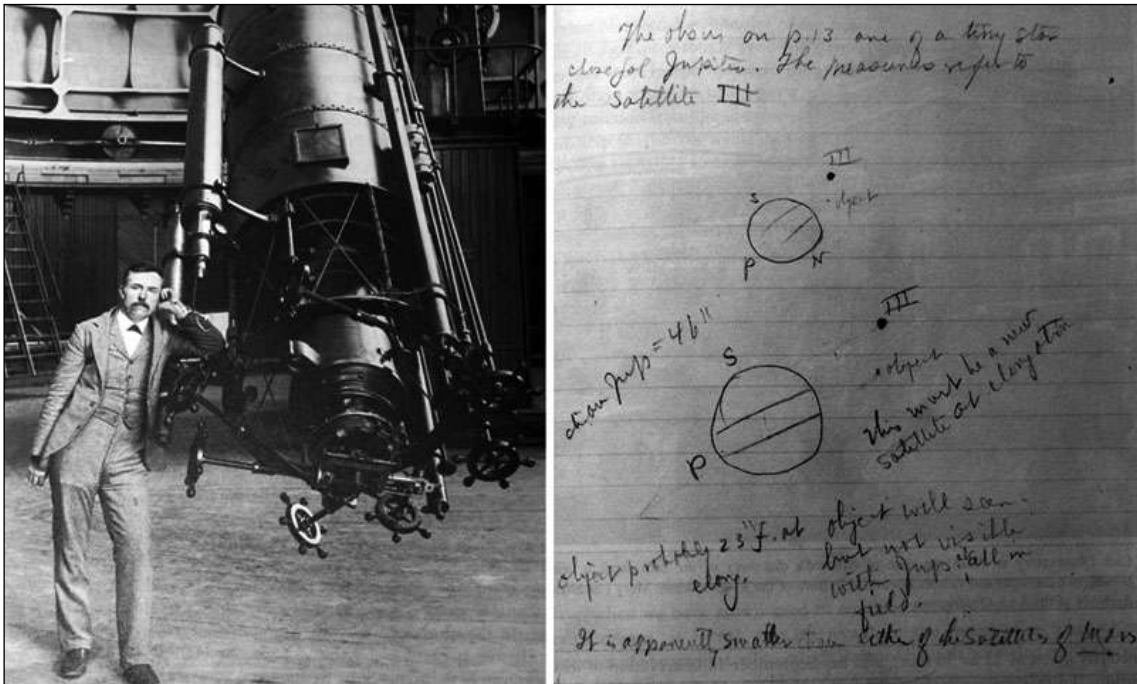 The obsns on p.13 are of a tiny star
close fol Jupiter. The measures refer to
the Satellite III
III
object
S
P
N
III
diam Jup = 46"
S
object
This must be a new
satellite at elongation
P
object probably 23" f. at
elong.
object well seen
but not visible
with Jup. at all in
field.
It is apparently smaller than either of the satellites of Mars